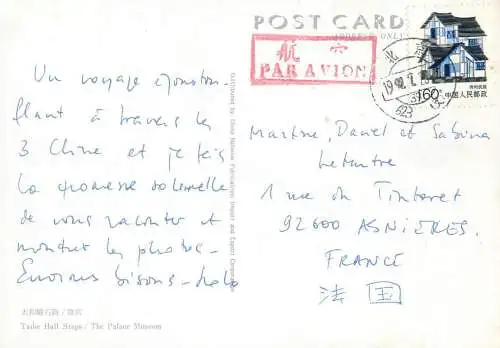 POST CARD
ADDRESS ONLY
航空
PAR AVION
北京
1992.
623
160
中国人民邮政
贵州民居
Un voyage époustou-
flant à travers les
3 Chine et je fais
la promesse solennelle
de vous raconter et
montrer les photos -
Enormes bisous -
太和殿石階 / 故宮
Taihe Hall Steps / The Palace Museum
Distributed by China National Publications Import and Export Corporation
Martine, Daniel et Sabina
Lemaitre
1 rue du Tintoret
92600 ASNIÈRES.
FRANCE
法 国